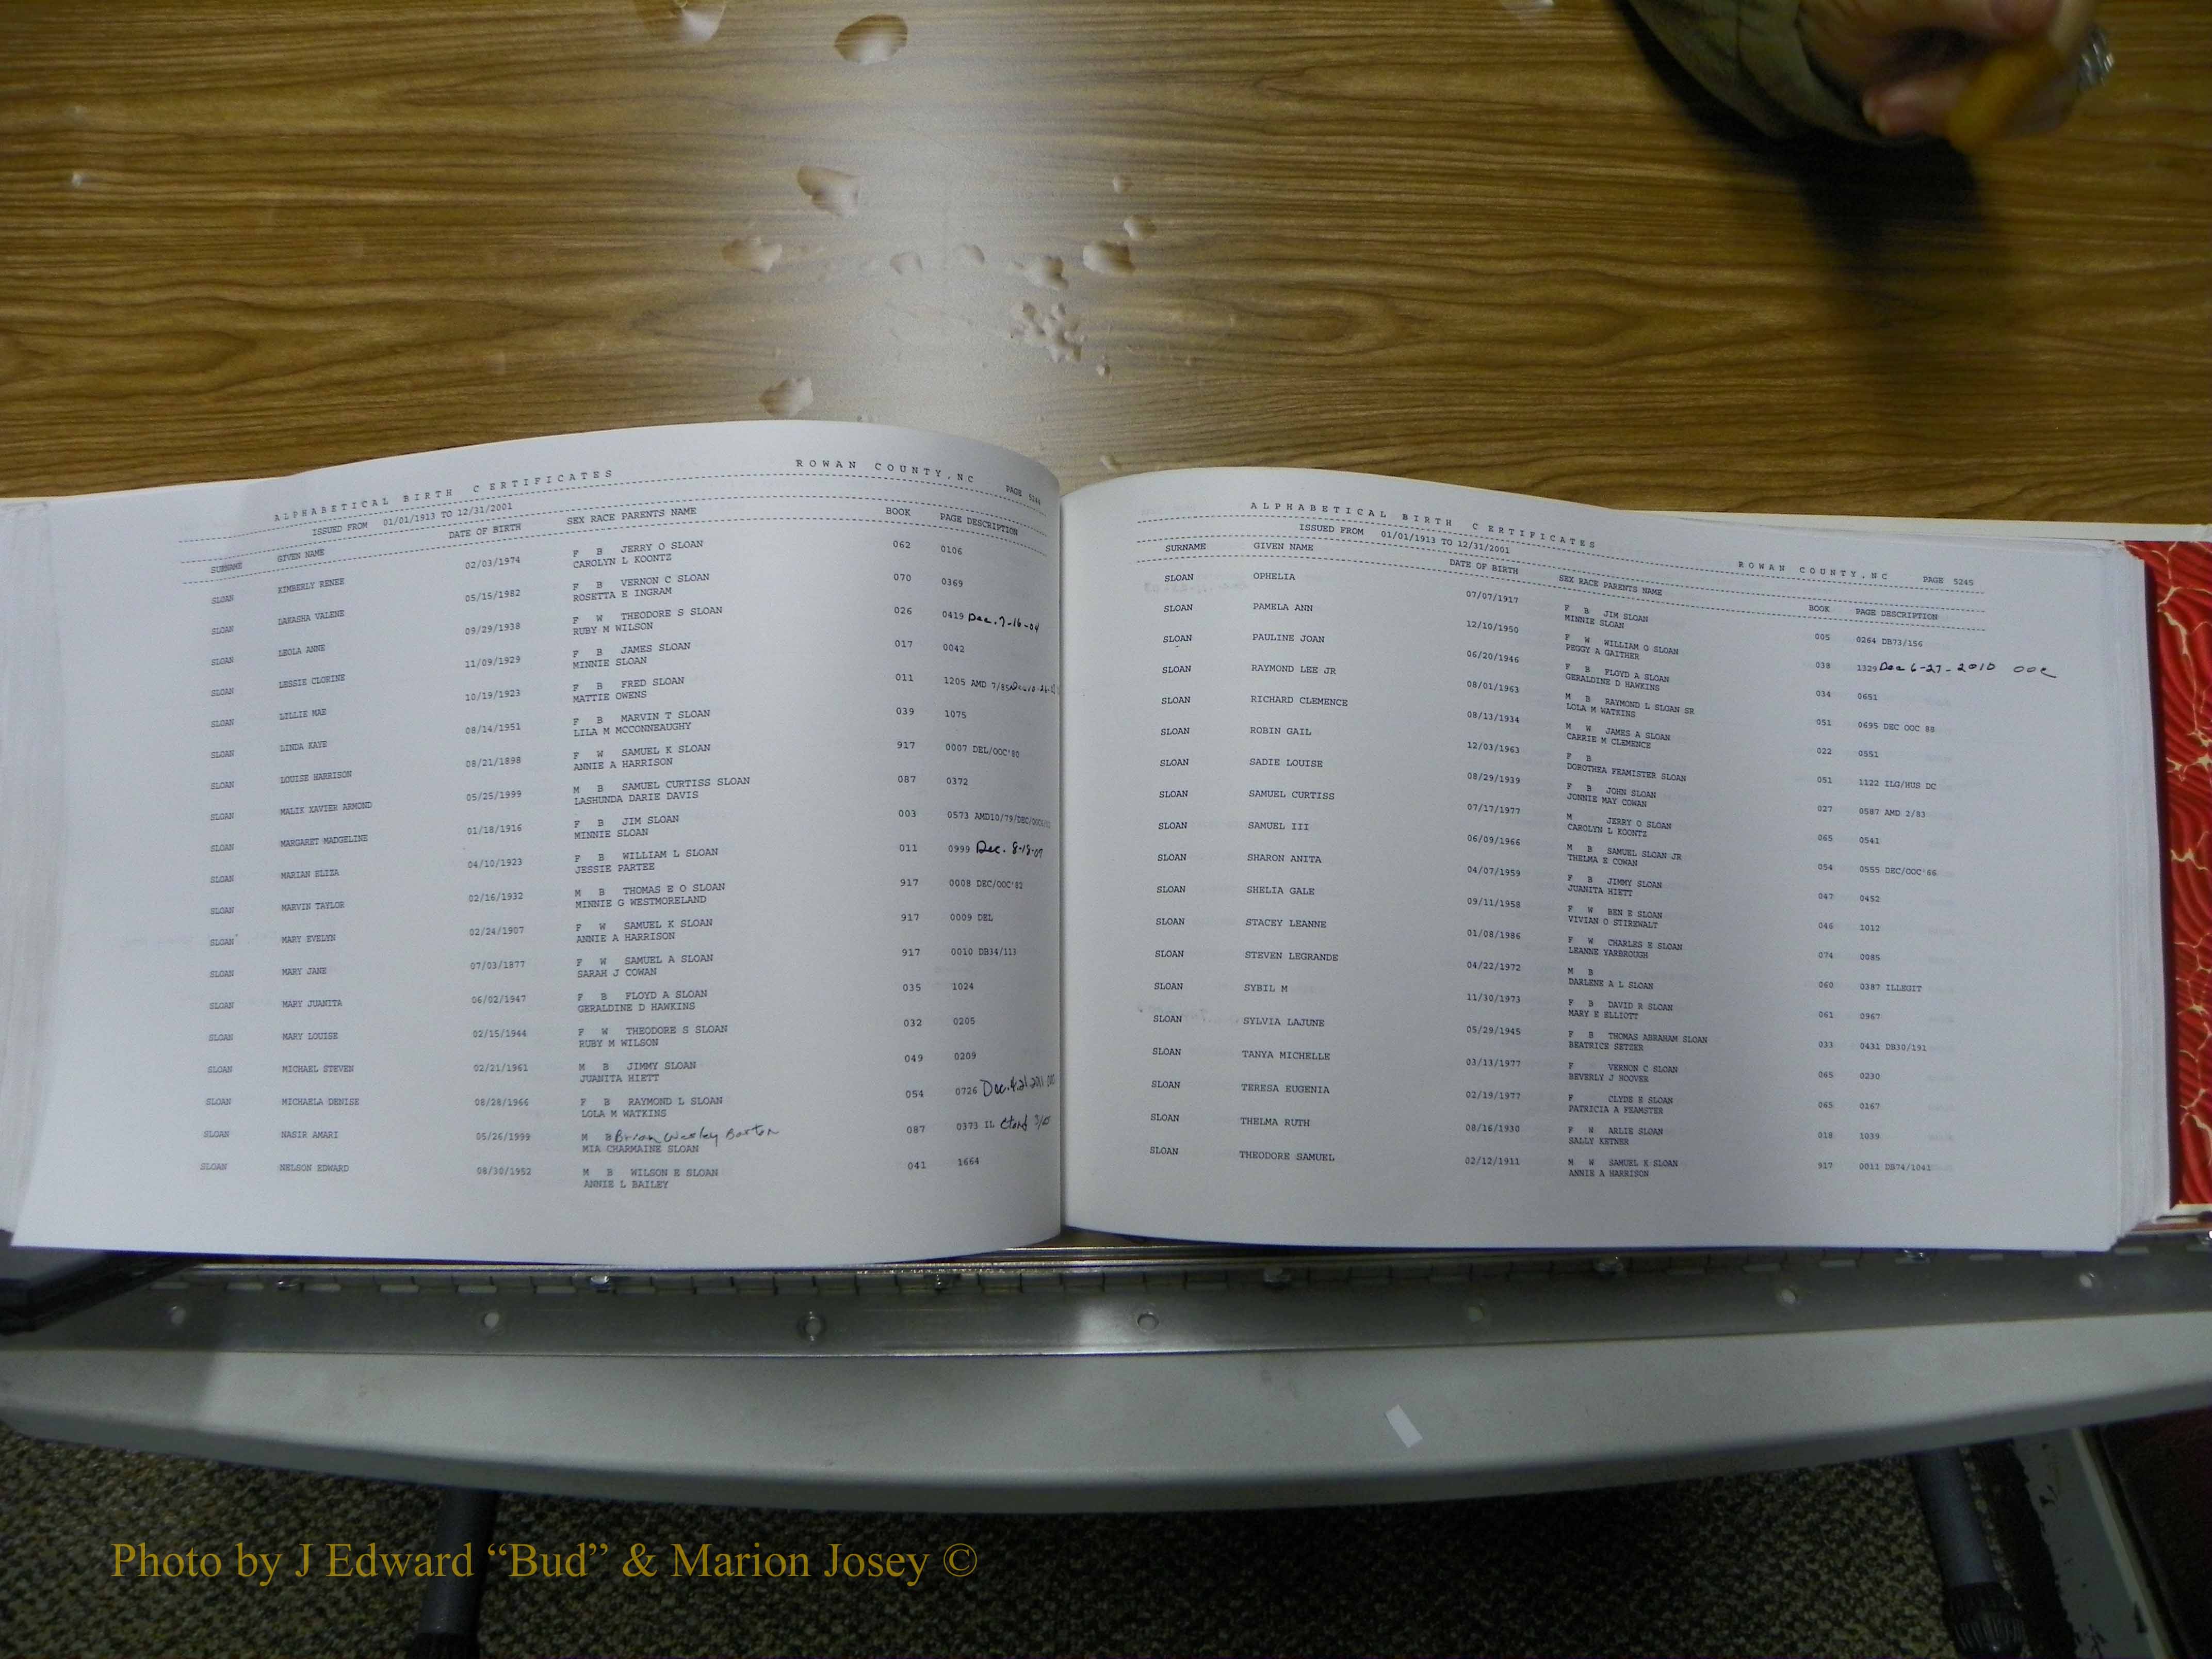 ALPHABETICAL BIRTH CERTIFICATES ROWAN COUNTY,NC PAGE
ISSUED FROM 01/01/1913 TO 12/31/2001
SURNAME GIVEN NAME DATE OF BIRTH SEX RACE PARENTS NAME BOOK PAGE DESCRIPTION
SLOAN KIMBERLY RENEE 02/03/1974 F B JERRY O SLOAN 062 0106
CAROLYN L KOONTZ
SLOAN LAKASHA VALENE 05/15/1982 F B VERNON C SLOAN 070 0369
ROSETTA E INGRAM
SLOAN LEOLA ANNE 09/29/1938 F W THEODORE S SLOAN 026 0419 Dec. 7-16-04
RUBY M WILSON
SLOAN LESSIE CLORINE 11/09/1929 F B JAMES SLOAN 017 0042
MINNIE SLOAN
SLOAN LILLIE MAE 10/19/1923 F B FRED SLOAN 011 1205 AMD 7/85
MATTIE OWENS
SLOAN LINDA KAYE 08/14/1951 F B MARVIN T SLOAN 039 1075
LILA M MCCONNEAUGHY
SLOAN LOUISE HARRISON 08/21/1898 F W SAMUEL K SLOAN 917 0007 DEL/OOC'80
ANNIE A HARRISON
SLOAN MALIK XAVIER ARMOND 05/25/1999 M B SAMUEL CURTISS SLOAN 087 0372
LASHUNDA DARIE DAVIS
SLOAN MARGARET MADGELINE 01/18/1916 F B JIM SLOAN 003 0573 AMD10/79/DEC/
MINNIE SLOAN
SLOAN MARIAN ELIZA 04/10/1923 F B WILLIAM L SLOAN 011 0999 Dec.
JESSIE PARTEE
SLOAN MARVIN TAYLOR 02/16/1932 M B THOMAS E O SLOAN 917 0008 DEC/OOC'82
MINNIE G WESTMORELAND
SLOAN MARY EVELYN 02/24/1907 F W SAMUEL K SLOAN 917 0009 DEL
ANNIE A HARRISON
SLOAN MARY JANE 07/03/1877 F W SAMUEL A SLOAN 917 0010 DB34/113
SARAH J COWAN
SLOAN MARY JUANITA 06/02/1947 F B FLOYD A SLOAN 035 1024
GERALDINE D HAWKINS
SLOAN MARY LOUISE 02/15/1944 F W THEODORE S SLOAN 032 0205
RUBY M WILSON
SLOAN MICHAEL STEVEN 02/21/1961 M B JIMMY SLOAN 049 0209
JUANITA HIETT
SLOAN MICHAELA DENISE 08/28/1966 F B RAYMOND L SLOAN 054 0726 Dec.
LOLA M WATKINS
SLOAN NASIR AMARI 05/26/1999 M B Brian Wesley Barton 087 0373 IL
MIA CHARMAINE SLOAN
SLOAN NELSON EDWARD 08/30/1952 M B WILSON E SLOAN 041 1664
ANNIE L BAILEY
ALPHABETICAL BIRTH CERTIFICATES ROWAN COUNTY,NC PAGE 5245
ISSUED FROM 01/01/1913 TO 12/31/2001
SURNAME GIVEN NAME DATE OF BIRTH SEX RACE PARENTS NAME BOOK PAGE DESCRIPTION
SLOAN OPHELIA 07/07/1917 F B JIM SLOAN 005 0264 DB73/156
MINNIE SLOAN
SLOAN PAMELA ANN 12/10/1950 F W WILLIAM O SLOAN 038 1329 Dec 6-27-2010 OOC
PEGGY A GAITHER
SLOAN PAULINE JOAN 06/20/1946 F B FLOYD A SLOAN 034 0651
GERALDINE D HAWKINS
SLOAN RAYMOND LEE JR 08/01/1963 M B RAYMOND L SLOAN SR 051 0695 DEC OOC 88
LOLA M WATKINS
SLOAN RICHARD CLEMENCE 08/13/1934 M W JAMES A SLOAN 022 0551
CARRIE M CLEMENCE
SLOAN ROBIN GAIL 12/03/1963 F B 051 1122 ILG/HUS DC
DOROTHEA FEAMISTER SLOAN
SLOAN SADIE LOUISE 08/29/1939 F B JOHN SLOAN 027 0587 AMD 2/83
JONNIE MAY COWAN
SLOAN SAMUEL CURTISS 07/17/1977 M JERRY O SLOAN 065 0541
CAROLYN L KOONTZ
SLOAN SAMUEL III 06/09/1966 M B SAMUEL SLOAN JR 054 0555 DEC/OOC'66
THELMA E COWAN
SLOAN SHARON ANITA 04/07/1959 F B JIMMY SLOAN 047 0452
JUANITA HIETT
SLOAN SHELIA GALE 09/11/1958 F W BEN E SLOAN 046 1012
VIVIAN O STIREWALT
SLOAN STACEY LEANNE 01/08/1986 F W CHARLES E SLOAN 074 0085
LEANNE YARBROUGH
SLOAN STEVEN LEGRANDE 04/22/1972 M B 060 0387 ILLEGIT
DARLENE A L SLOAN
SLOAN SYBIL M 11/30/1973 F B DAVID R SLOAN 061 0967
MARY E ELLIOTT
SLOAN SYLVIA LAJUNE 05/29/1945 F B THOMAS ABRAHAM SLOAN 033 0431 DB30/191
BEATRICE SETZER
SLOAN TANYA MICHELLE 03/13/1977 F VERNON C SLOAN 065 0230
BEVERLY J HOOVER
SLOAN TERESA EUGENIA 02/19/1977 F CLYDE E SLOAN 065 0167
PATRICIA A FEAMSTER
SLOAN THELMA RUTH 08/16/1930 F W ARLIE SLOAN 018 1039
SALLY KETNER
SLOAN THEODORE SAMUEL 02/12/1911 M W SAMUEL K SLOAN 917 0011 DB74/1041
ANNIE A HARRISON
Photo by J Edward “Bud” & Marion Josey ©